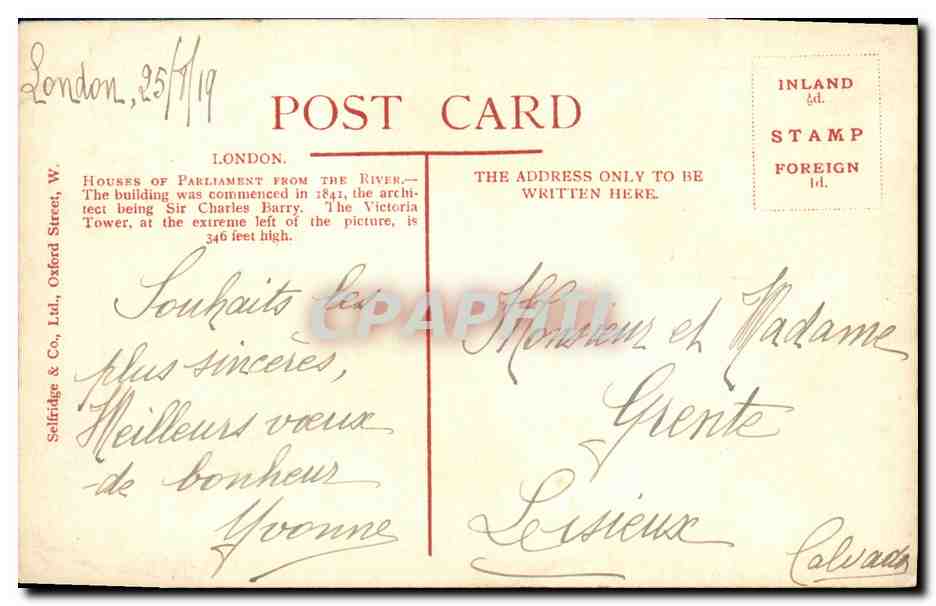 London, 25/8/19
POST CARD
INLAND
½d.
STAMP
FOREIGN
1d.
LONDON.
HOUSES OF PARLIAMENT FROM THE RIVER.—
The building was commenced in 1841, the archi-
tect being Sir Charles Barry. The Victoria
Tower, at the extreme left of the picture, is
346 feet high.
THE ADDRESS ONLY TO BE
WRITTEN HERE.
Selfridge & Co., Ltd., Oxford Street, W.
Souhaits les
plus sincères,
Meilleurs vœux
de bonheur
Yvonne
CPAPHIL
Monsieur et Madame
Grente
Lisieux
Calvados